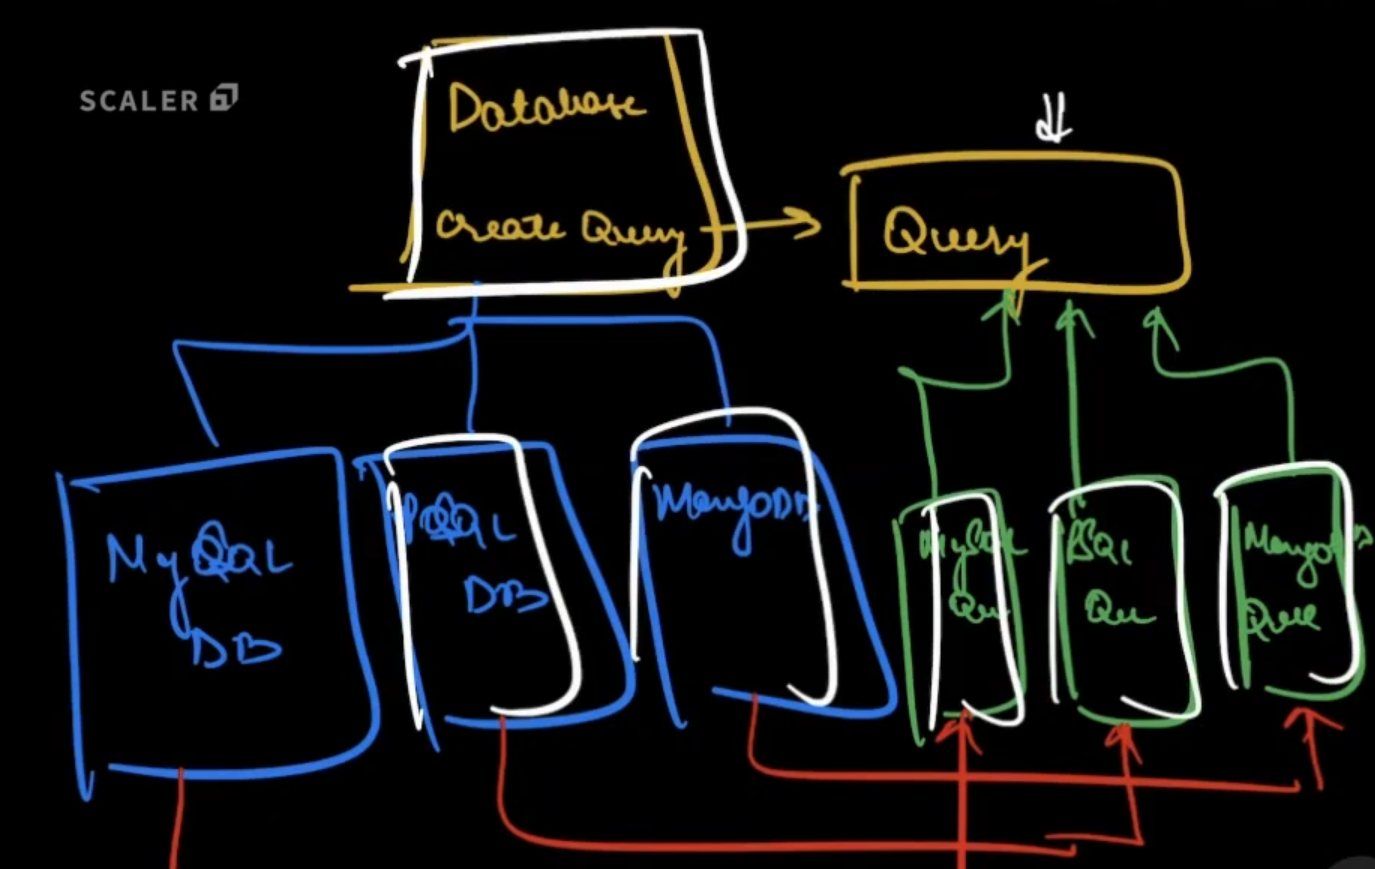 SCALER
Database
Create Query
Query
MySQL
DB
PSQL
DB
MongoDB
MySQL
Qu
PSQL
Qu
MongoDB
Que